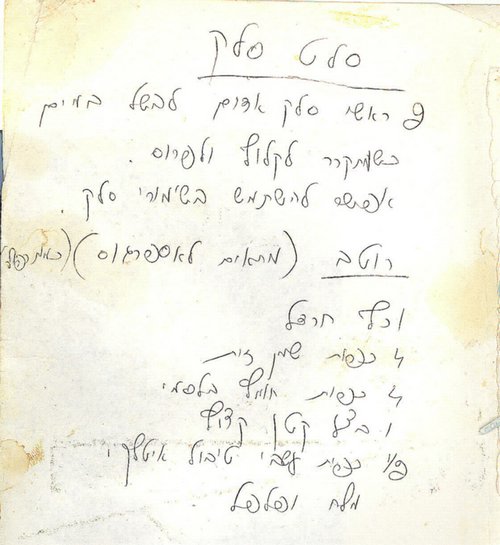 סלט סלק
ראשי סלק אדום לבשל במים
כשמתקרר לקלוף ולפרוס.
אפשר להשתמש בשימורי סלק.
רוטב (מתאים לאספרגוס)
1 כף חרדל
4 כפות שמן זית
4 כפות חומץ בלסמי
1 בצל קטן קצוץ
כפית עשבי טיבול איטלקי
מלח ופלפל